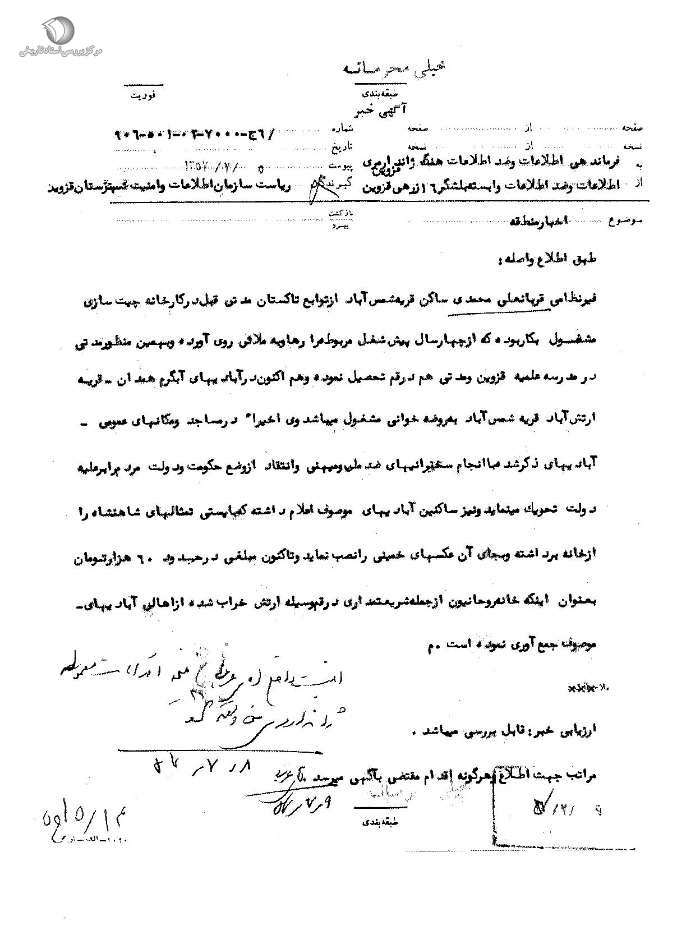 مرکز بررسی اسناد تاریخی
خیلی محرمانه
طبقه‌بندی
فوریت
آگهی خبر
شماره ۹۰۶-۵۰۱-۰۲-۷۰۰۰-۶ج/
صفحه از صفحه
نسخه از نسخه
تاریخ
به فرماندهی اطلاعات وضد اطلاعات هنگ ژاندارمری قزوین
پیوست ۱۳۵۷/۰۷/۰۵
از اطلاعات وضد اطلاعات وابسته بلشگر ۱۶ زرهی قزوین
گیرنده ریاست سازمان اطلاعات وامنیت شهرستان قزوین
موضوع اخبار منطقه
بازگشت
پیرو
طبق اطلاع واصله:
غیرنظامی قربانعلی محمدی ساکن قریه شمس‌آباد ازتوابع تاکستان مدتی قبل درکارخانه چیت سازی
مشغول بکاربوده که ازچهارسال پیش شغل مربوطه را رها وبه ملائی روی آورده وبهمین منظورمدتی
در مدرسه علمیه قزوین ومدتی هم درقم تحصیل نموده وهم اکنون درآبادیهای آبگرم همدان - قریه
ارتش‌آباد قریه شمس‌آباد بروضه خوانی مشغول میباشد وی اخیراً درمساجد ومکانهای عمومی -
آبادیهای ذکرشده باانجام سخنرانیهای ضد ملی ومیهنی وانتقاد ازوضع حکومت ودولت مردم رابرعلیه
دولت تحریک مینماید ونیز ساکنین آبادیهای موصوف اعلام داشته که بایستی تمثالهای شاهنشاه را
ازخانه برداشته وبجای آن عکسهای خمینی رانصب نماید وتاکنون مبلغی درحدود ۶۰ هزارتومان
بعنوان اینکه خانه روحانیون ازجمله شریعتمداری درقم وسیله ارتش خراب شده ازاهالی آبادیهای-
موصوف جمع آوری نموده است .م
ارزیابی خبر: قابل بررسی میباشد .
۵۷/۷/۸
مراتب جهت اطلاع وهرگونه اقدام مقتضی بآگهی میرسد
۵۷/۷/۹
طبقه‌بندی